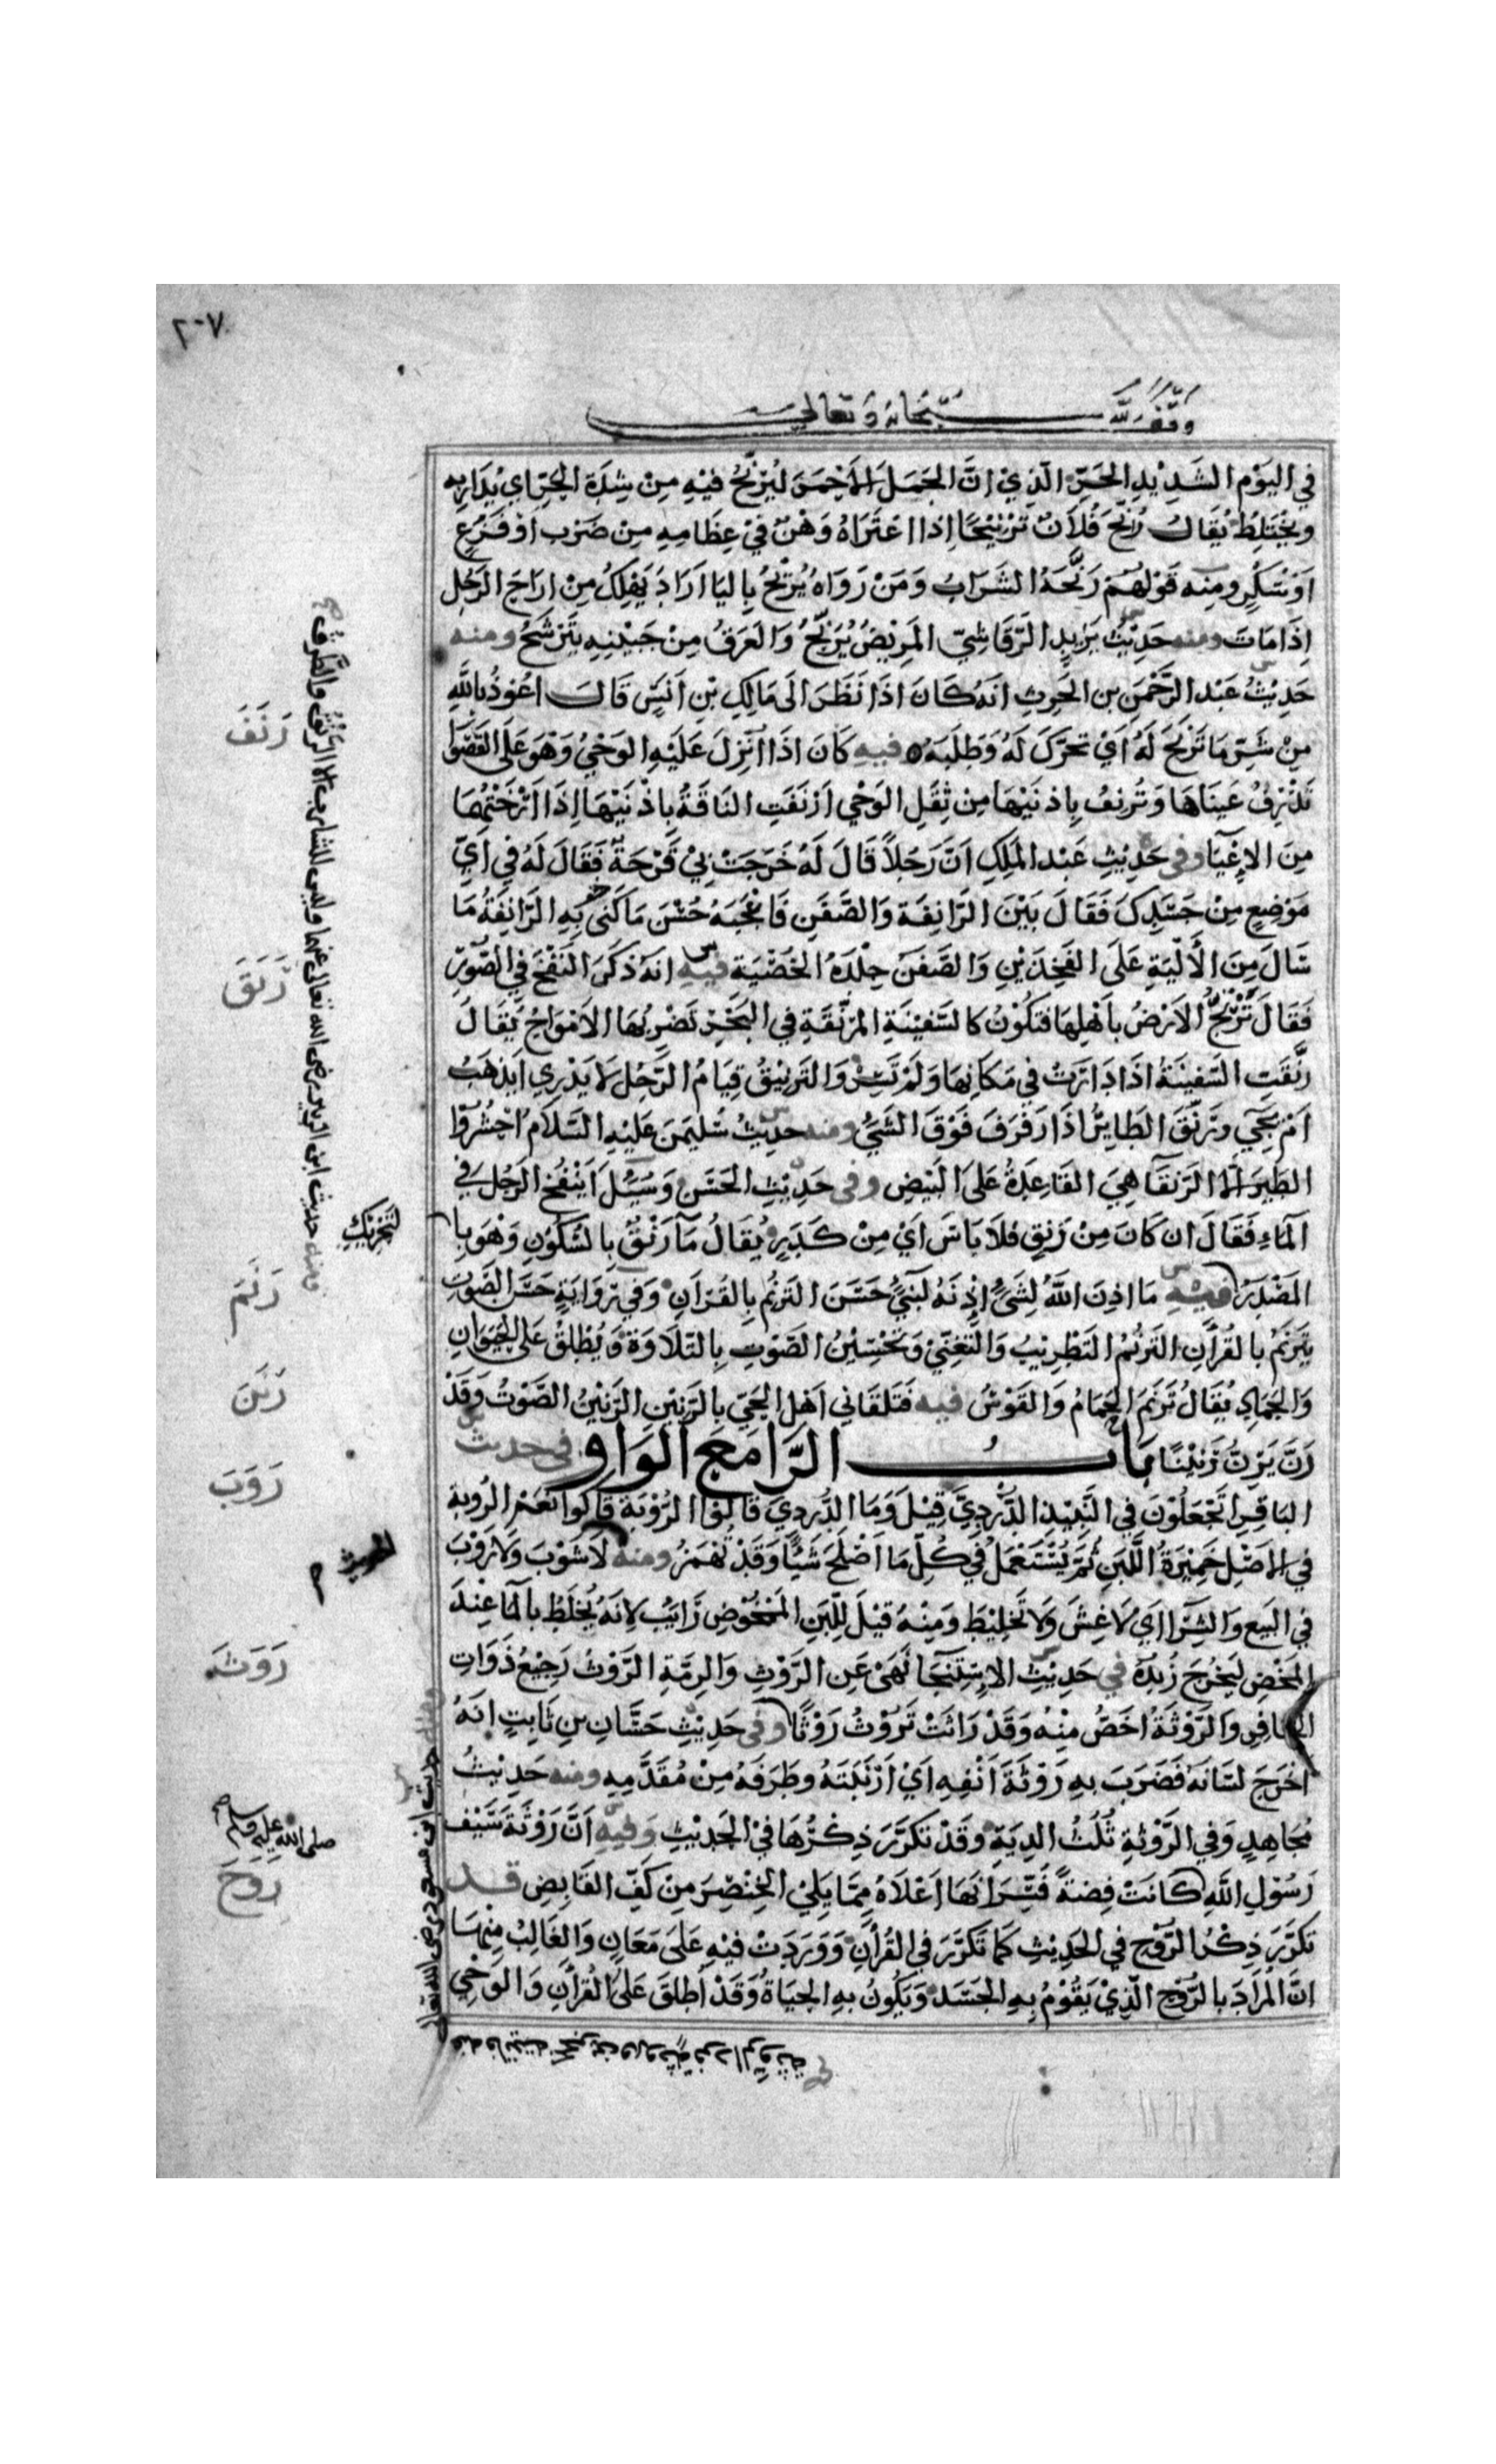 ٢٠٧
وقف لله سبحانه وتعالى
في اليَوْمِ الشَدِيْدِ الحَرِّ الّذِيْ اِنَّ الجَمَلَ الأَحْمَرَ لَيُرَنَّحُ فيْهِ مِنْ شِدَّةِ الحَرِّ اي يُدَارُ بِهِ
ويَخْتَلِطُ يُقَالُ رُنِّحَ فُلَانٌ تَرْنِيْحًا اِذَا اعْتَرَاهُ وَهْنٌ فيْ عِظَامِهِ مِنْ ضَرْبٍ اَوْ فَزَعٍ
اَوْ سُكْرٍ ومِنْه قَوْلهُمْ رَنَّحَهُ الشَرَابُ وَمَنْ رَوَاهُ يُرِيْحُ بِاليَا اَرَادَ يَهْلِكُ مِنْ اَرَاحَ الرَجُلُ
اِذَا مَاتَ ومنه حَدِيْثُ يَزِيدٍ الرَّقَاشِيّ المَرِيْضُ يُرَنَّحُ وَالعَرَقُ مِنْ جَبِيْنِهِ يَتَرَشَّحُ ومنه
حَدِيْثُ عَبْد الرَّحْمٰنِ بن الحَرِثِ اَنَهُ كَانَ اذَا نَظَرَ الَى مَالِكِ بْنِ اَنَسٍ قَالَ اعُوذُ بِاللّهِ
مِنْ شَرِّ مَا تَرَنَّحَ لَهُ اَيْ تَحَرَّكَ لَهُ وَطَلَبَهُ فيهِ كَانَ اذَا اُنْزِلَ عَلَيْهِ الوَحْيُ وَهْوَ عَلَى القَصْوَا
تَذْرِفُ عَيْنَاهَا وَتُرْنِفُ بِاذنَيْهَا مِن ثِقَلِ الوَحْيِ اَرْنَفَتِ النَاقَةُ بِاذْنَيْهَا اِذَا اَرْخَتْهُمَا
مِنَ الاِعْيَآ وفى حَدِيْثِ عَبْد المَلِكِ اَنَّ رَجُلاً قَالَ لَهُ خَرَجَتْ بِيْ قَرْحَةٌ فَقَالَ لَهُ في اَيِّ
مَوْضِعٍ مِنْ جَسَدِكَ فَقَالَ بَيْنَ الرَّانِفَةِ وَالصَّفَنِ فَاَعْجَبَهُ حُسْنُ مَا كَنَى بِهِ الرَّانِفَةُ مَا
سَالَ مِنَ الأَلْيَةِ عَلَى الفَخِذَيْنِ وَالصَّفَنُ جِلْدَةُ الخُصْيَةِ فيه انَهُ ذَكَرَ النَفْخَ في الصُّوْرِ
فَقَالَ تَرْتَجُّ الاَرْضُ بِاَهْلِهَا فَتَكُوْنُ كَالسَّفِيْنَةِ المُرَنِّقَةِ في البَحْرِ تَضْرِبُهَا الاَمْوَاجُ يُقَالُ
رَنَّقَتِ السَّفِينَةُ اذَا دَارَتْ في مَكَانِهَا وَلَمْ تَسِرْ وَالتَرْنِيْقُ قِيَامُ الرَّجُلِ لَا يَدْرِي اَيَذهَبُ
اَمْ يَجِي ورَنَّقَ الطَايِرُ اذَا رَفْرَفَ فَوْقَ الشَيْءِ ومنه حدِيْثُ سُلَيمٰنَ عَلَيْهِ السَّلَام اُحْشُرُوا
الطَيرَ الَّا الرَنْقَآ هِيَ القَاعِدَةُ عَلَى البَيْضِ وفى حَدِيْثِ الحَسَنِ وَسُئِلَ اَيَنْفُخُ الرَجُلُ في
المَاءِ فَقَالَ ان كَانَ مِنْ رَنقٍ فلَا بَاسَ اَيْ مِنْ كَدَرٍ يُقَالُ مَآ رَنْقٌ بِالسُكُوْنِ وَهْوَ بِا
المَصْدَرُ فيه مَا اذِنَ اللّهُ لِشَيْءٍ اِذْنَهُ لِنَبِيٍّ حَسَنِ التَرَنُّمِ بِالقُرْاَنِ وَفي رِوَايَةٍ حَسَن الصَوْتِ
يَتَرَنّمُ بِالقُرْاَنِ التَرَنُّمُ التَطْرِيْبُ وَالتَّغَنّيْ وَتَحْسِيْنُ الصَوْتِ بِالتِلَاوَةِ وَيُطْلَقُ عَلَى الحَيَوَانِ
وَالجَمَادِ يُقَالُ تَرَنّمَ الحَمَامُ وَالقَوْسُ فيه فَتَلَقّانِي اَهْلُ الحَيّ بِالرَنِيْنِ الرَنِيْنُ الصَّوْتُ وَقَدْ
رَنَّ يَرِنُّ رَنِيْنًا بَابُ الرَّا مَعَ الوَاو في حديث
البَاقِرِ اَتَجْعَلُوْنَ في النَّبِيْذِ الدُّرْدِيَّ قِيْلَ وَمَا الدُّرْدِيّ قَالَ الرُّوْبَةَ قَالُوا نَعَمْ الرُوبة
في الاَصْلِ خَمِيْرَةُ اللَّبَنِ ثُمّ يُسْتَعْمَلُ في كُلِّ مَا اَصْلَحَ شَيْئًا وَقَدْ تُهْمَزُ ومنه لَا شَوْبَ وَلَا رَوْبَ
في البَيْع وَالشِّرَا اَي لَا غِشَّ وَلَا تَخْلِيْطَ وَمِنْهُ قيْلَ لِلَّبَنِ المَمْخُوْضِ رَايِبٌ لِانَهُ يُخْلَطُ بِالمَا عِنْدَ
المَخْضِ لِيَخْرُجَ زُبدُهُ في حَدِيْثِ الاِسْتِنْجَا نَهَى عَنِ الرَّوْثِ وَالرِمَّةِ الرَّوْثُ رَجِيْعُ ذَوَاتِ
الحَافِرِ وَالرَّوْثَةُ اَخَصُّ مِنْهُ وَقَدْ رَاثَتْ تَرُوْثُ رَوْثًا وفى حَدِيْثِ حَسَّانِ بنِ ثَابِتٍ اَنَهُ
اَخْرَجَ لِسَانَهُ فَضَرَبَ بِهِ رَوْثَةَ اَنْفِهِ اَيْ اَرْنَبَتَهُ وطَرَفَهُ مِنْ مُقَدَّمِهِ ومنه حَدِيْثُ
مُجَاهِدٍ وَفي الرَّوْثَةِ ثُلُثُ الدِيَةِ وَقَدْ تكَرَّرَ ذِكْرُهَا فيْ الحَدِيْثِ وَفيهِ اَنَّ رَوْثَةَ سَيْف
رَسُوْلِ اللّهِ كَانَتْ فِضَةً فُسِّرَ اَنَهَا اَعْلَاهُ مِمَّا يَلِيْ الخِنْصِرَ مِنْ كَفِّ القَابِضِ قد
تكَرَّرَ ذِكْرُ الرُّوْحِ في الحَدِيْثِ كَمَا تَكَرَّرَ في القُرْاَنِ وَوَرَدَتْ فيْهِ عَلَى مَعَانٍ وَالغَالِبُ مِنْهَا
اِنَّ المُرَادَ بِالرُوْحِ الّذِيْ يَقُوْمُ بِهِ الجَسَد وَيَكُونُ بهِ الحَيَاةُ وَقَدْ اُطْلِقَ عَلَى القُرْاَنِ وَالوَحْيِ
رَنَفَ
رَنَقَ
التحريك
رَنَمَ
رَنَنَ
رَوَبَ
الحديث
رَوَثَ
صلى الله عليه وسلم
رَوَحَ
ومنه حديث ابن الزبير رضى الله تعالى عنهما وليس للشارب الا الرَنْقُ والطَّرْق
حديث ابن مسعود رضى الله تعالى